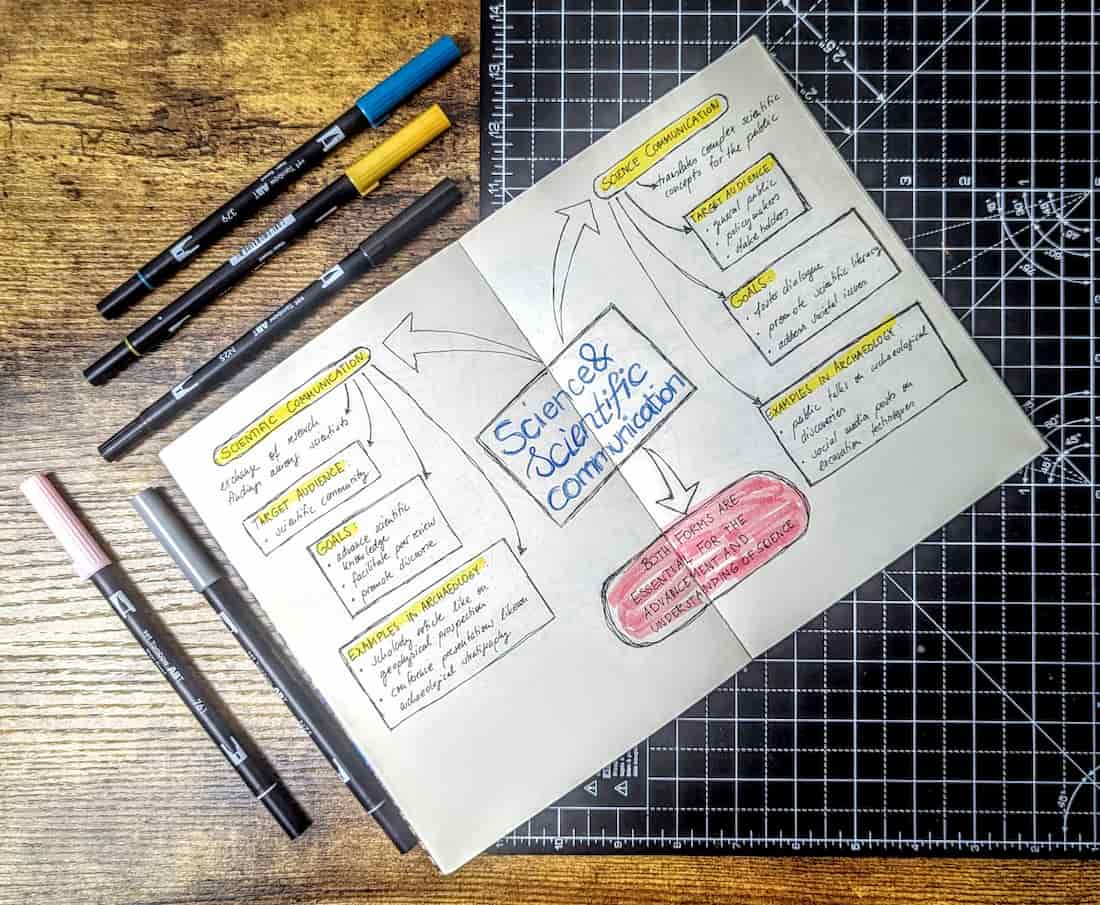 Science &
Scientific
communication
SCIENTIFIC COMMUNICATION
exchange of research
findings among scientists
TARGET AUDIENCE:
• scientific community
GOALS:
• advance scientific
knowledge
• facilitate peer review
• promote discourse
EXAMPLES IN ARCHAEOLOGY
• scholarly article like on
geophysical prospection
• conference presentations
archaeological stratigraphy
SCIENCE COMMUNICATION
translates complex scientific
concepts for the public
TARGET AUDIENCE
• general public
• policymakers
• stakeholders
GOALS:
• foster dialogue
• promote scientific literacy
• address societal issues
EXAMPLES IN ARCHAEOLOGY:
• public talks on archaeological
discoveries
• social media posts on
excavation techniques
BOTH FORMS ARE
ESSENTIAL FOR THE
ADVANCEMENT AND
UNDERSTANDING OF SCIENCE
Tombow ABT
379
Tombow ABT
N25
Tombow ABT
761
14
13
12
11
2.5"
2"
3
2
1